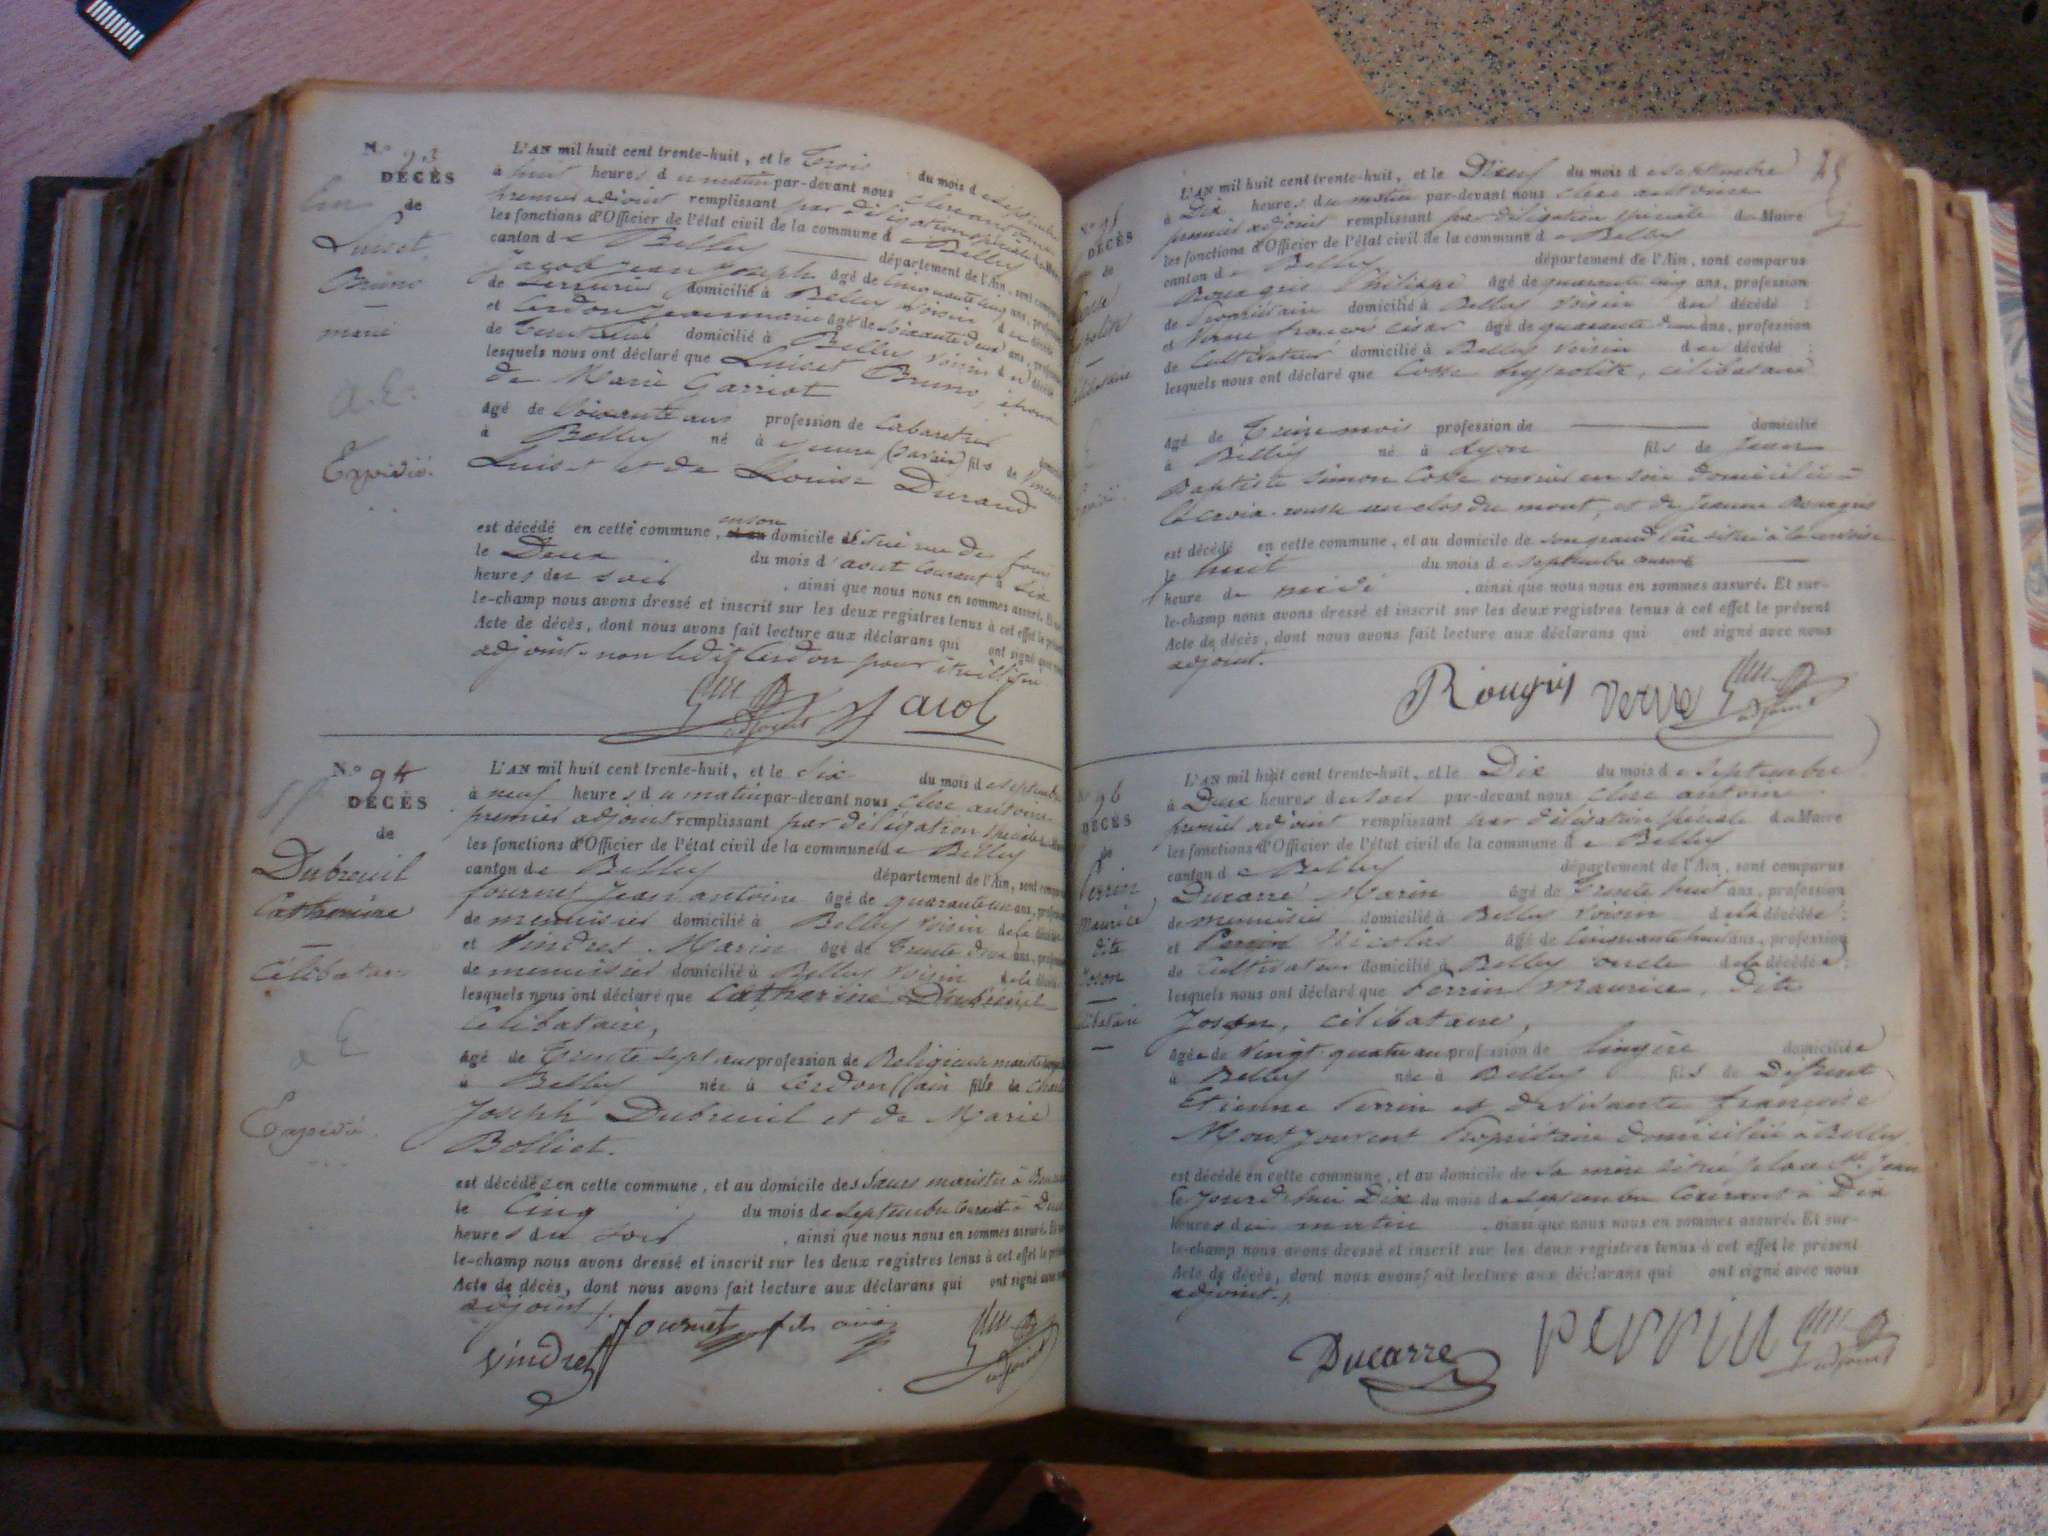 N° 93
DÉCÈS
de
Luiset
Bruno
marié
a. E.
Expédié.
L'AN mil huit cent trente-huit, et le trois du mois de septembre
à huit heures du matin par-devant nous Clerc antoine
premier adjoint remplissant par délégation spéciale
les fonctions d'Officier de l'état civil de la commune de Belley
canton de Belley département de l'Ain, sont comparus
Jacob jean joseph âgé de cinquante cinq ans, profession
de Serrurier domicilié à Belley Voisin du décédé
et Cerdon jeanmarie âgé de soixante deux ans, profession
de domicilié à Belley Voisin du décédé
lesquels nous ont déclaré que Luiset Bruno, époux
de Marie Garriot
âgé de Soixante ans profession de Cabaretier
à Belley né à yenne (Savoie) fils de Vincent
Luiset et de Louise Durand
est décédé en cette commune, en son domicile situé rue du four
le Deux du mois d'aout Courant à Dix
heures du soir, ainsi que nous nous en sommes assuré. Et sur-
le-champ nous avons dressé et inscrit sur les deux registres tenus à cet effet le présent
Acte de décès, dont nous avons fait lecture aux déclarans qui ont signé avec nous
adjoint. non ledit Cerdon pour être illitéré
adjoint Jacob
N° 94
DÉCÈS
de
Dubreuil
Catherine
Célibataire
a E
Expédié.
L'AN mil huit cent trente-huit, et le six du mois de septembre
à neuf heures du matin par-devant nous Clerc antoine
premier adjoint remplissant par délégation spéciale
les fonctions d'Officier de l'état civil de la commune de Belley
canton de Belley département de l'Ain, sont comparus
fournet Jean antoine âgé de quarante un ans, profession
de menuisier domicilié à Belley Voisin de la décédée
et Vindret Marin âgé de trente deux ans, profession
de menuisier domicilié à Belley Voisin de la décédée
lesquels nous ont déclaré que Catherine Dubreuil
Célibataire,
âgé de trente sept ans profession de Religieuse mariste
à Belley née à Cerdon (Ain fille de Charles
Joseph Dubreuil et de Marie
Bolliet.
est décédée en cette commune, et au domicile des Sœurs maristes à
le Cinq du mois de septembre Courant à
heures du soir, ainsi que nous nous en sommes assuré. Et sur-
le-champ nous avons dressé et inscrit sur les deux registres tenus à cet effet le présent
Acte de décès, dont nous avons fait lecture aux déclarans qui ont signé avec nous
adjoint.
Vindret fournet fils ainé adjoint
N° 95
DÉCÈS
de
L'AN mil huit cent trente-huit, et le Dieuf du mois de septembre
à Dix heures du matin par-devant nous Clerc antoine
premier adjoint remplissant par délégation spéciale du Maire
les fonctions d'Officier de l'état civil de la commune de Belley
canton de Belley département de l'Ain, sont comparus
Rougris Philippe âgé de quarante cinq ans, profession
de Propriétaire domicilié à Belley Voisin du décédé ;
et Verne françois césar âgé de quarante deux ans, profession
de Cultivateur domicilié à Belley Voisin du décédé ;
lesquels nous ont déclaré que Cosse hyppolite, célibataire
âgé de treize mois profession de domicilié
à Belley né à Lyon fils de Jean
Baptiste Simon Cosse ouvrier en soie domicilié à
la croix-rousse au clos du mont, et de Jeanne Rougris
est décédé en cette commune, et au domicile de son grand père situé à
le huit du mois de septembre courant
heure de midi, ainsi que nous nous en sommes assuré. Et sur-
le-champ nous avons dressé et inscrit sur les deux registres tenus à cet effet le présent
Acte de décès, dont nous avons fait lecture aux déclarans qui ont signé avec nous
adjoint.
Rougris Verne adjoint
N° 96
DÉCÈS
de
Perrin
Maurice
dite
Joson
L'AN mil huit cent trente-huit, et le Dix du mois de septembre
à Deux heures du soir par-devant nous Clerc antoine
premier adjoint remplissant par délégation spéciale du Maire
les fonctions d'Officier de l'état civil de la commune de Belley
canton de Belley département de l'Ain, sont comparus
Ducarre Marin âgé de trente huit ans, profession
de menuisier domicilié à Belley Voisin de la décédée ;
et Perrin Nicolas âgé de cinquante huit ans, profession
de Cultivateur domicilié à Belley oncle de la décédée ;
lesquels nous ont déclaré que Perrin Maurice, dite
Joson, célibataire,
âgée de Vingt-quatre ans profession de lingère domiciliée
à Belley née à Belley fils de Défunt
Etienne Perrin et de vivante françoise
Montjouvent Propriétaire domiciliée à Belley
est décédé en cette commune, et au domicile de sa mère situé place St. Jean
le jourdhui Dix du mois de septembre Courant à Dix
heures du matin, ainsi que nous nous en sommes assuré. Et sur-
le-champ nous avons dressé et inscrit sur les deux registres tenus à cet effet le présent
Acte de décès, dont nous avons fait lecture aux déclarans qui ont signé avec nous
adjoint.
Ducarre perrin adjoint